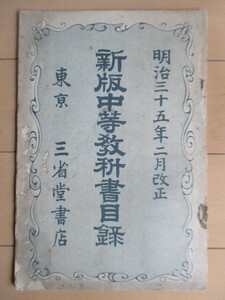 明治三十五年二月改正
新版中等教科書目録
東京 三省堂書店